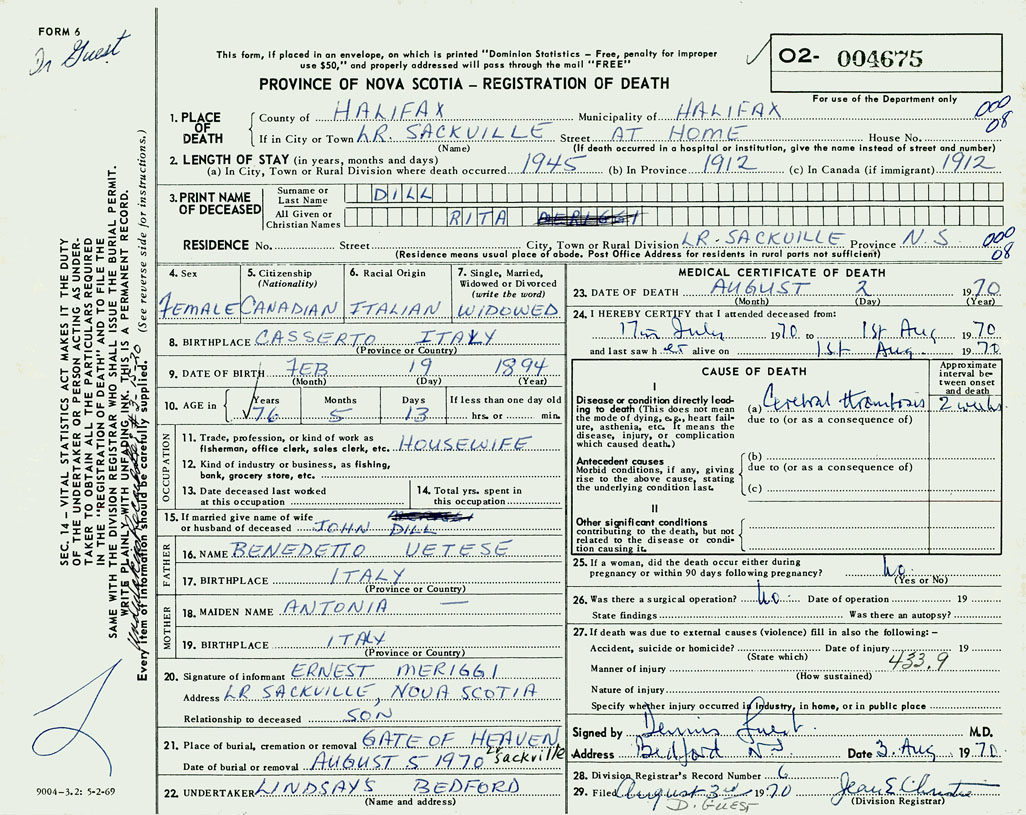 FORM 6
Dr Guest
This form, if placed in an envelope, on which is printed "Dominion Statistics – Free, penalty for improper
use $50," and properly addressed will pass through the mail "FREE"
PROVINCE OF NOVA SCOTIA – REGISTRATION OF DEATH
O2- 004675
For use of the Department only
1. PLACE OF DEATH
County of HALIFAX Municipality of HALIFAX 000
If in City or Town LR. SACKVILLE Street AT HOME House No. 08
(Name) (If death occurred in a hospital or institution, give the name instead of street and number)
2. LENGTH OF STAY (in years, months and days)
(a) In City, Town or Rural Division where death occurred 1945 (b) In Province 1912 (c) In Canada (if immigrant) 1912
3. PRINT NAME OF DECEASED
Surname or Last Name DILL
All Given or Christian Names RITA
RESIDENCE No. Street City, Town or Rural Division LR. SACKVILLE Province N.S 000
(Residence means usual place of abode. Post Office Address for residents in rural parts not sufficient) 08
4. Sex
FEMALE
5. Citizenship
(Nationality)
CANADIAN
6. Racial Origin
ITALIAN
7. Single, Married,
Widowed or Divorced
(write the word)
WIDOWED
8. BIRTHPLACE CASSERTO ITALY
(Province or Country)
9. DATE OF BIRTH FEB 19 1894
(Month) (Day) (Year)
10. AGE in
Years Months Days If less than one day old
76 5 13 hrs. or min.
OCCUPATION
11. Trade, profession, or kind of work as
fisherman, office clerk, sales clerk, etc. HOUSEWIFE
12. Kind of industry or business, as fishing,
bank, grocery store, etc.
13. Date deceased last worked
at this occupation
14. Total yrs. spent in
this occupation
15. If married give name of wife
or husband of deceased JOHN DILL
FATHER
16. NAME BENEDETTO VETESE
17. BIRTHPLACE ITALY
(Province or Country)
MOTHER
18. MAIDEN NAME ANTONIA —
19. BIRTHPLACE ITALY
(Province or Country)
20. Signature of informant ERNEST MERIGGI
Address LR SACKVILLE, NOVA SCOTIA
Relationship to deceased SON
21. Place of burial, cremation or removal GATE OF HEAVEN
Lr Sackville
Date of burial or removal AUGUST 5 1970
22. UNDERTAKER LINDSAYS BEDFORD
(Name and address)
MEDICAL CERTIFICATE OF DEATH
23. DATE OF DEATH AUGUST 2 1970
(Month) (Day) (Year)
24. I HEREBY CERTIFY that I attended deceased from:
17th July 1970 to 1st Aug 1970
and last saw her alive on 1st Aug. 1970
CAUSE OF DEATH
Approximate
interval be-
tween onset
and death
I
Disease or condition directly lead-
ing to death (This does not mean
the mode of dying, e.g., heart fail-
ure, asthenia, etc. It means the
disease, injury, or complication
which caused death.)
(a) Cerebral thrombosis 2 weeks
due to (or as a consequence of)
Antecedent causes
Morbid conditions, if any, giving
rise to the above cause, stating
the underlying condition last.
(b)
due to (or as a consequence of)
(c)
II
Other significant conditions
contributing to the death, but not
related to the disease or condi-
tion causing it.
25. If a woman, did the death occur either during
pregnancy or within 90 days following pregnancy? no
(Yes or No)
26. Was there a surgical operation? no. Date of operation 19
State findings Was there an autopsy?
27. If death was due to external causes (violence) fill in also the following: –
Accident, suicide or homicide? Date of injury 19
(State which)
433.9
Manner of injury
(How sustained)
Nature of injury
Specify whether injury occurred in industry, in home, or in public place
Signed by Dennis Guest M.D.
Address Bedford NS Date 3. Aug 1970.
28. Division Registrar's Record Number 6
29. Filed August 3rd 1970 Jean E Christie
D. GUEST (Division Registrar)
SEC. 14 – VITAL STATISTICS ACT MAKES IT THE DUTY
OF THE UNDERTAKER OR PERSON ACTING AS UNDER-
TAKER TO OBTAIN ALL THE PARTICULARS REQUIRED
IN THE "REGISTRATION OF DEATH" AND TO FILE THE
SAME WITH THE DIVISION REGISTRAR WHO SHALL ISSUE THE BURIAL PERMIT.
WRITE PLAINLY WITH UNFADING INK. THIS IS A PERMANENT RECORD.
Every item of information should be carefully supplied. (See reverse side for instructions.)
9004-3.2: 5-2-69